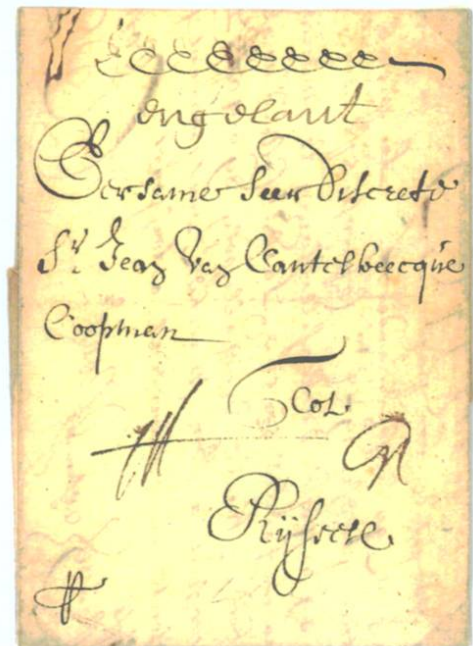 engelant
Eersame seer Discrete
Sr. Jean Van Cantelbeecque
Coopman
Tot
Rijssele